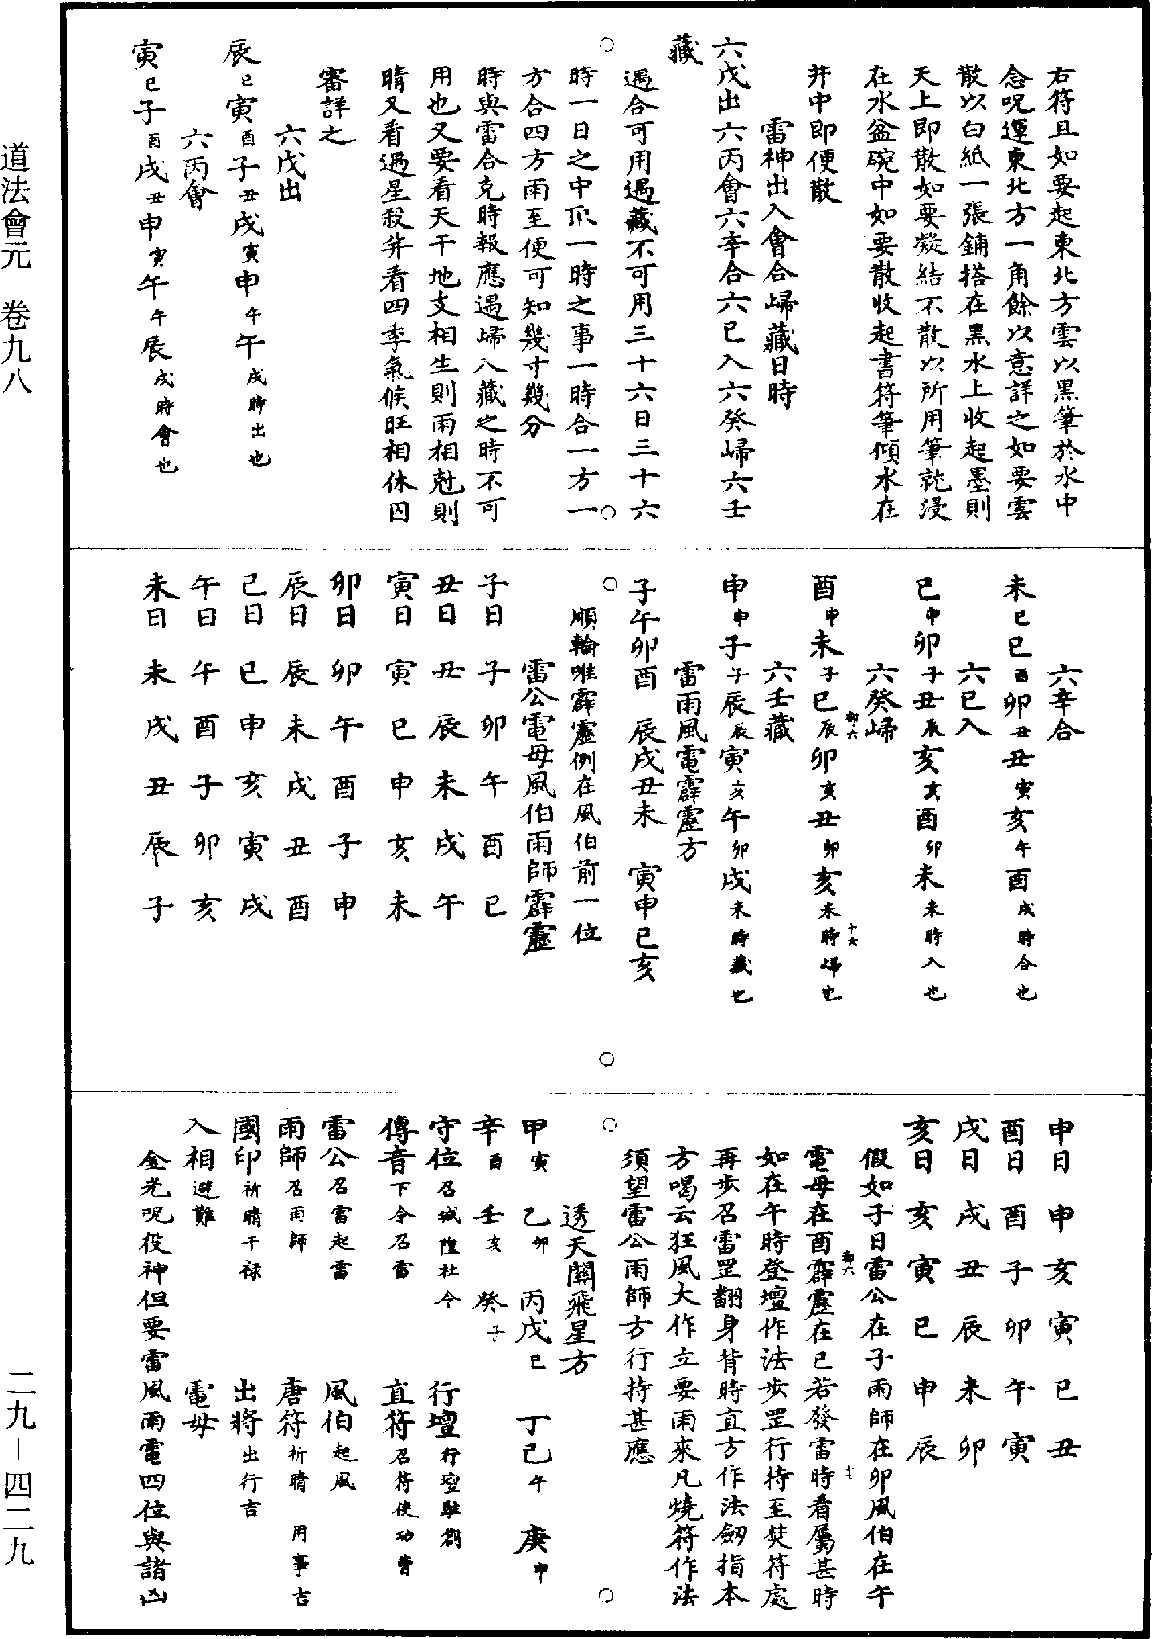 右符且如要起東北方雲以黑筆於水中
念呪運東北方一角餘以意詳之如要雲
散以白紙一張鋪搭在黑水上收起墨則
天上即散如要凝結不散以所用筆就浸
在水盆碗中如要散收起書符筆傾水在
井中即便散
雷神出入會合歸藏日時
六戊出六丙會六辛合六巳入六癸歸六壬
藏
遇合可用遇藏不可用三十六日三十六
時一日之中爪一時之事一時合一方一
方合四方雨至便可知幾寸幾分
時與雷合克時報應遇歸入藏之時不可
用也又要看天干地支相生則雨相尅則
晴又看過星殺并看四季氣候旺相休囚
審詳之
六戊出
辰巳寅酉子丑戌寅申午午戌時出也
六丙會
寅巳子酉戌丑申寅午午辰戌時會也
六辛合
未巳巳酉卯丑丑寅亥午酉戌時合也
六巳入
巳申卯子丑辰亥亥酉卯未未時入也
六癸歸
酉申未子巳辰卯亥丑卯亥未時歸也
六壬藏
申申子午辰辰寅亥午卯戌未時藏也
雷雨風電霹靂方
子午卯酉 辰戌丑未 寅申巳亥
順輪唯霹靂例在風伯前一位
雷公電母風伯雨師霹靂
子日 子 卯 午 酉 巳
丑日 丑 辰 未 戌 午
寅日 寅 巳 申 亥 未
卯日 卯 午 酉 子 申
辰日 辰 未 戌 丑 酉
巳日 巳 申 亥 寅 戌
午日 午 酉 子 卯 亥
未日 未 戌 丑 辰 子
申日 申 亥 寅 巳 丑
酉日 酉 子 卯 午 寅
戌日 戌 丑 辰 未 卯
亥日 亥 寅 巳 申 辰
假如子日雷公在子雨師在卯風伯在午
電母在酉霹靂在巳若發雷時看屬甚時
如在午時登壇作法步罡行持至焚符處
再步召雷罡翻身背時直方作法劒指本
方喝云狂風大作立要雨來凡燒符作法
須望雷公雨師方行持甚應
透天關飛星方
甲寅 乙卯 丙戊巳 丁己午 庚申
辛酉 壬亥 癸子
守位召城隍社令 行壇行壇駐劄
傳音下令召雷 直符召符使功曹
雷公召雷起雷 風伯起風
雨師召雨師 唐符祈晴 用事吉
國印祈晴干祿 出將出行吉
入相避難 電母
金光呪役神但要雷風雨電四位與諸凶
道法會元 卷九八
二九－四二九